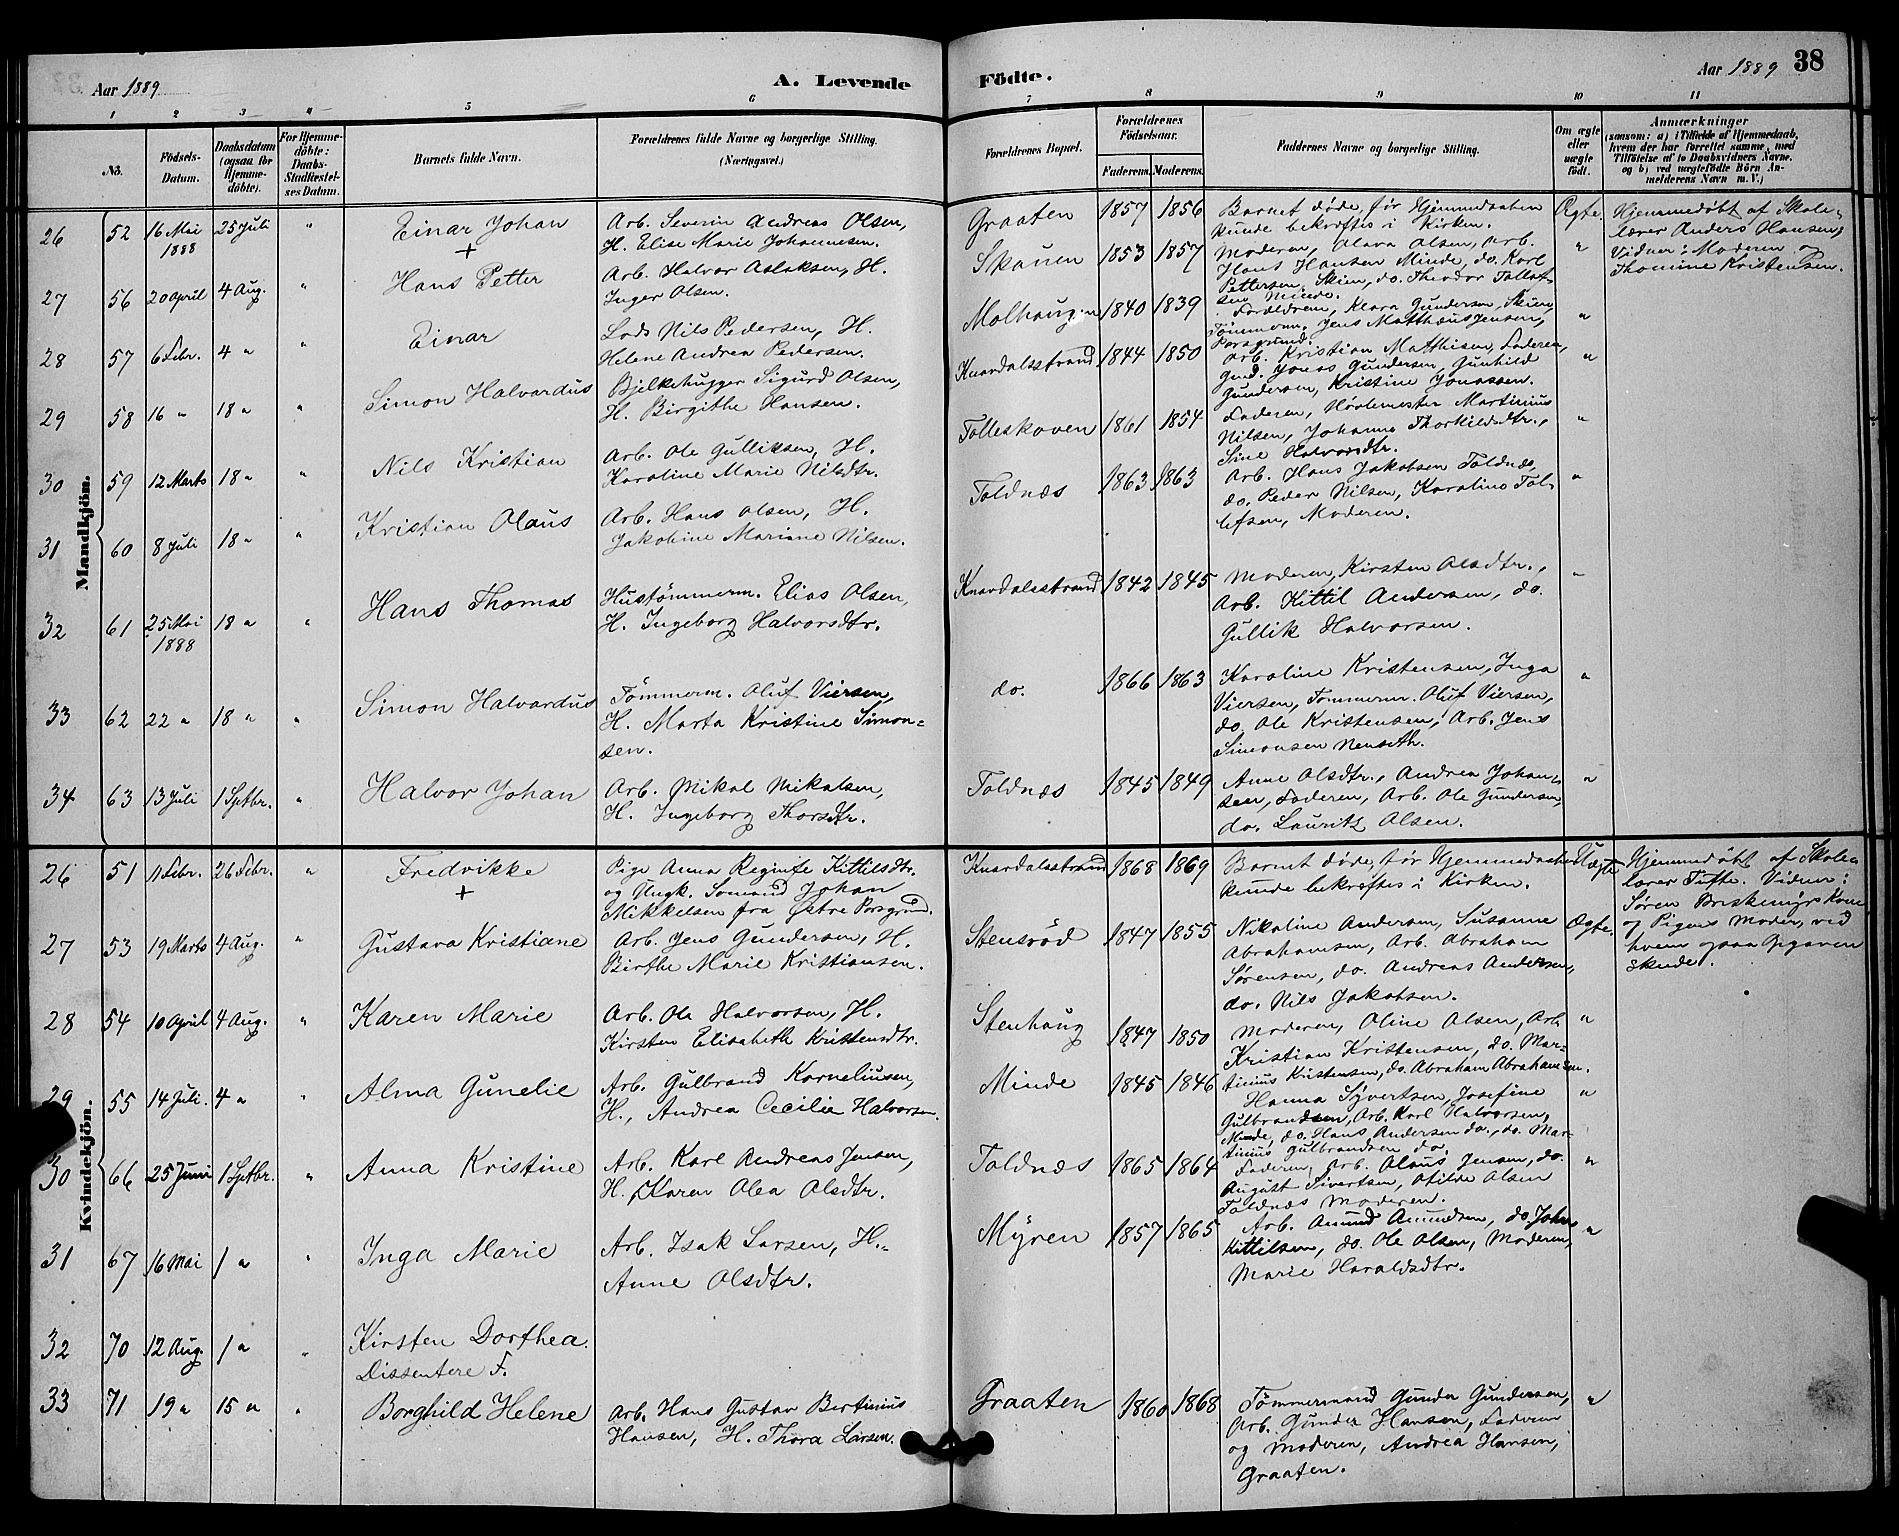 Aar 1889
A. Levende
1 2 3 4 5 6
No.
Födsels-
Datum.
Daabsdatum
(ogsaa for
Hjemme-
döbte).
For Hjemme-
döbte:
Daabs-
Stadfæstel-
ses Datum.
Barnets fulde Navn.
Forældrenes fulde Navne og borgerlige Stilling.
(Næringsvei.)
Mandkjön.
26 52 16 Mai 1888 25 Juli " Einar Johan +
Arb. Severin Andreas Olsen,
H. Elise Marie Johannesen.
27 56 20 April 4 Aug. " Hans Petter
Arb. Halvor Aslaksen, H.
Inger Olsen.
28 57 6 Febr. 4 " " Einar
Lods Nils Pedersen, H.
Helene Andrea Pedersen.
29 58 16 " 18 " " Simon Halvardus
Bjelkehugger Sigurd Olsen,
H. Birgithe Hansen.
30 59 12 Marts 18 " " Nils Kristian
Arb. Ole Gulliksen, H.
Karoline Marie Nilsdtr.
31 60 8 Juli 18 " " Kristian Olaus
Arb. Hans Olsen, H.
Jakobine Mariane Nilsen.
32 61 25 Mai 1888 18 " " Hans Thomas
Hustømmerm. Elias Olsen,
H. Ingeborg Halvorsdtr.
33 62 22 " 18 " " Simon Halvardus
Tömmerm. Oluf Viersen,
H. Marta Kristine Simon=
sen.
34 63 13 Juli 1 Sptbr. " Halvor Johan
Arb. Mikal Mikalsen,
H. Ingeborg Thorsdtr.
Kvindekjön.
26 51 11 Febr. 26 Febr. " Fredrikke +
Pige Anna Regine Kittilsdtr.
og Ungk. Sømand Johan
Mikkelsen fra Østre Porsgrund.
27 53 19 Marts 4 Aug. " Gustava Kristiane
Arb. Jens Gundersen, H.
Birthe Marie Kristiansen.
28 54 10 April 4 Aug. " Karen Marie
Arb. Ole Halvorsen, H.
Kirsten Elisabeth Kristensdtr.
29 55 14 Juli. 4 " " Alma Gunelie
Arb. Gulbrand Korneliusen,
H., Andrea Cecilie Halvorsen.
30 66 25 Juni 1 Sptbr. " Anna Kristine
Arb. Karl Andreas Jensen,
H. Karen Olea Olsdtr.
31 67 16 Mai 1 " " Inga Marie
Arb. Isak Larsen, H.
Anne Olsdtr.
32 70 12 Aug. 1 " " Kirsten Dorthea.
Dissentere F.
33 71 19 " 15 " " Borghild Helene
Arb. Hans Gustav Bertinius
Hansen, H. Thora Larsen.
Födte.
Aar 1889 38
7 8 9 10 11
Forældrenes Bopæl.
Forældrenes
Födselsaar.
Faderens. Moderens.
Faddernes Navne og borgerlige Stilling.
Om ægte
eller
uægte
födt.
Anmærkninger
(saasom: a) i Tilfælde af Hjemmedaab,
hvem der har forrettet samme, med
Tilföielse af to Daabsvidners Navne,
og b) ved uægtefödte Börn An-
melderens Navn m. V.)
Graaten 1857 1856
Barnet døde, før Hjemmedaaben
kunde bekræftes i Kirken.
Ægte.
Hjemmedøbt af Skole=
lærer Anders Hansen,
Vidner: Moderen og
Thomine Kristensen.
Skauen 1853 1857
Moderen, Alava Olsen, Arb.
Hans Hansen Minde, do. Karl
Pettersen, Skien, do. Theodor Tollef=
sen Minde.
"
Molhaugen 1840 1839
Forældrene, Klara Gundersen, Skien,
Tömmerm. Jens Matthæus Jensen,
Porsgrund.
"
Knardalsstrand 1844 1850
Arb. Kristian Mathisen, Faderen,
Gmd. Jonas Gundersen, Gunhild
Gundersen, Kristine Jonassen.
"
Tolleskoven 1861 1854
Faderen, Høvlemester Martinius
Nilsen, Johanne Thorkildsdtr.,
Sine Halvorsdtr.
"
Toldnæs 1863 1863
Arb. Hans Jakobsen Toldnæs,
do. Peder Nilsen, Karoline Tol-
lefsen, Moderen.
"
Knardalsstrand 1842 1845
Moderen, Kirsten Olsdtr.,
Arb. Kittil Andersen, do.
Gullik Halvorsen.
"
do. 1866 1863
Karoline Kristensen, Inga
Viersen, Tømmerm. Oluf Viersen,
do. Ole Kristensen, Arb. Jens
Simonsen Nenseth.
"
Toldnæs 1845 1849
Anne Olsdtr., Andrea Johan-
sen, Faderen, Arb. Ole Gundersen,
do. Lauritz Olsen.
"
Knardalsstrand 1868 1869
Barnet døde, før Hjemmedaaben
kunde bekræftes i Kirken.
Uægte
Hjemmedøbt af Skole=
lærer Tufte. Vidner:
Søren Briskemyrs Kone
og Pigens Moder, ved
hvem ogsaa Opgaven
skede.
Stensrød 1847 1855
Nikoline Andersen, Susanne
Abrahamsen, Arb. Abraham
Sørensen, do. Andreas Andersen,
do. Nils Jakobsen.
Ægte.
Stenhaug 1847 1850
Moderen, Oline Olsen, Arb.
Kristian Kristensen, do. Mar-
tinius Kristensen, do. Abraham Abrahamsen.
"
Minde 1845 1846
Hanna Syvertsen, Josefine
Gulbrandsen, Arb. Karl Halvorsen,
Minde, do. Hans Andersen do., do. Mar-
tinius Gulbrandsen do.
"
Toldnæs 1865 1864
Faderen, Arb. Olaus Jensen, do.
August Sivertsen, Otilde Olsen
Toldnæs Moderen.
"
Myren 1857 1865
Arb. Amund Amundsen, do. Johs
Kittilsen, do. Ole Olsen, Moderen,
Marie Haraldsdtr.
"
Graaten 1860 1868
Tømmermand Gunder Gundersen,
Arb. Gunder Hansen, Faderen
og Moderen, Andrea Hansen,
Graaten.
"